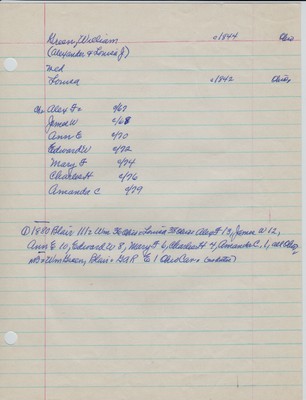 Green, William c1844 Ohio
(Alexander & Louisa J)
wed
Louisa c1842 Ohio
Ch: Alex F c/67
James W c/68
Ann E c/70
Edward W c/72
Mary F c/74
Charles H c/76
Amanda C c/79
① 1880 Blair 111: Wm 36 Louisa 38 Alex F 13, James W 12,
Ann E 10, Edward W 8, Mary F 6, Charles H 4, Amanda C, 1, all Ohio
Wm Green, Blair GAR E 1 Ohio Cav